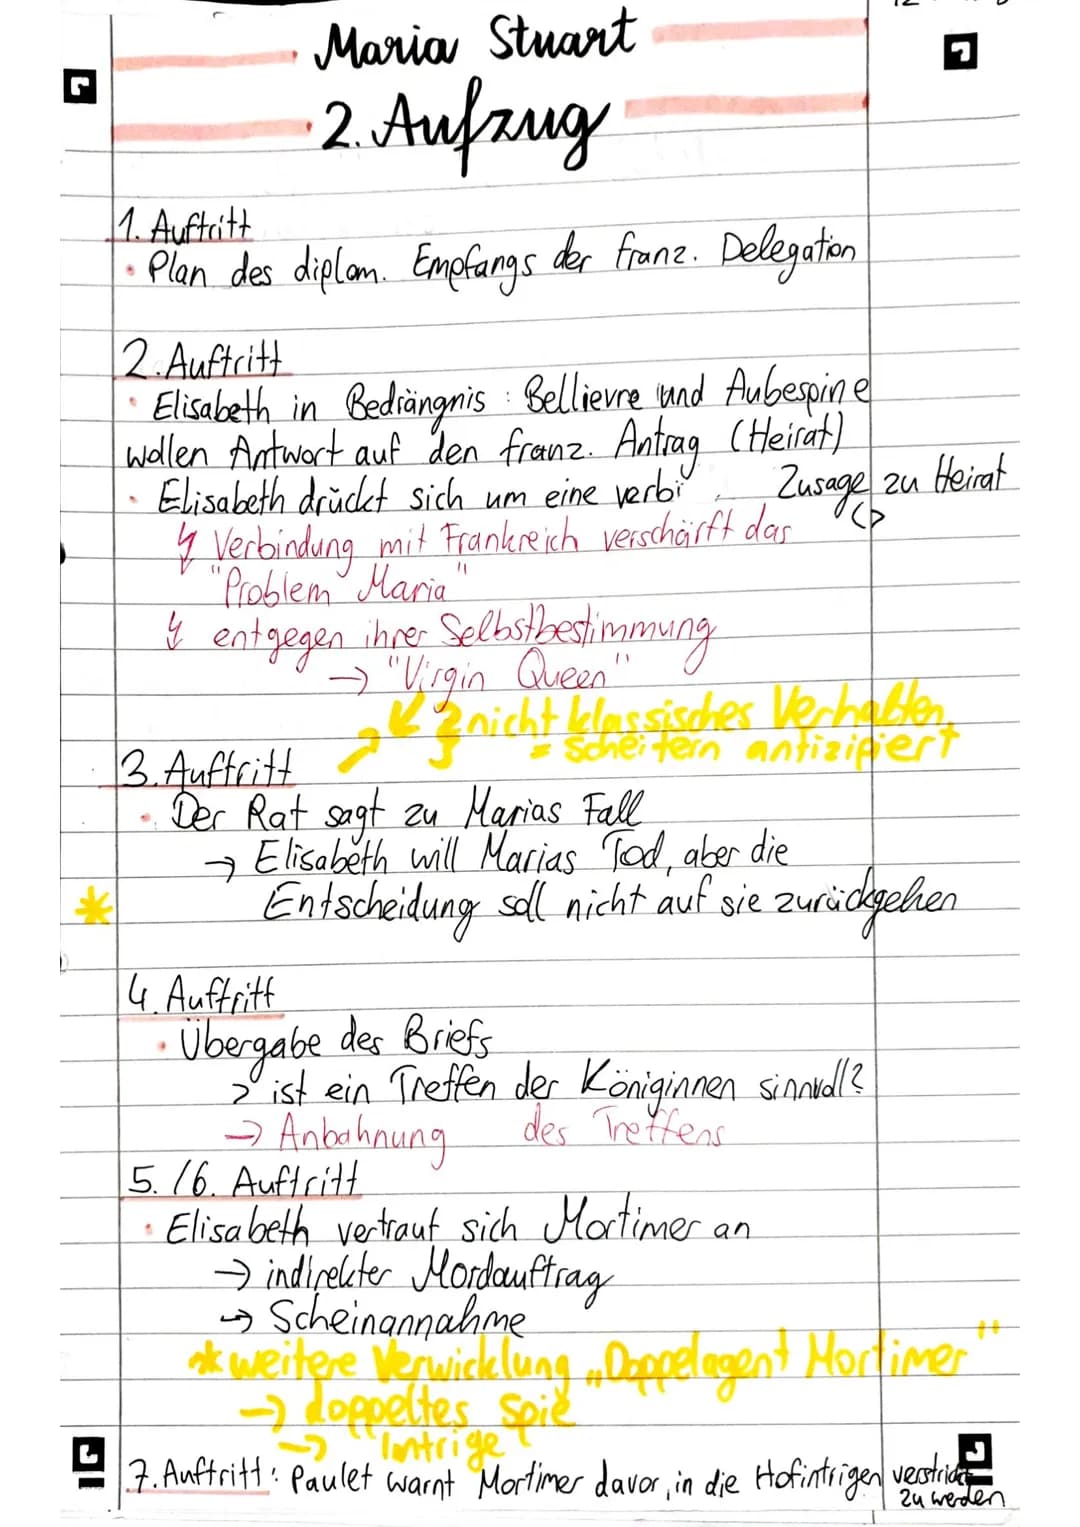 Maria Stuart
2. Aufzug
1. Auftritt
• Plan des diplom. Empfangs der franz. Delegation
2. Auftritt
• Elisabeth in Bedrängnis : Bellievre und Aubespine
wollen Antwort auf den franz. Antrag (Heirat)
• Elisabeth drückt sich um eine verbi Zusage zu Heirat
↯ Verbindung mit Frankreich verschärft das
"Problem Maria"
↯ entgegen ihrer Selbstbestimmung
→ "Virgin Queen"
nicht klassisches Verhalten,
= scheitern antizipiert
3. Auftritt
• Der Rat sagt zu Marias Fall
→ Elisabeth will Marias Tod, aber die
* Entscheidung soll nicht auf sie zurückgehen
4. Auftritt
• Übergabe des Briefs
> ist ein Treffen der Königinnen sinnvoll?
→ Anbahnung des Treffens
5. /6. Auftritt
• Elisabeth vertraut sich Mortimer an
→ indirekter Mordauftrag
→ Scheinannahme
* weitere Verwicklung „Doppelagent Mortimer"
→ doppeltes Spiel
→ Intrige
7. Auftritt : Paulet warnt Mortimer davor, in die Hofintrigen verstrickt
zu werden